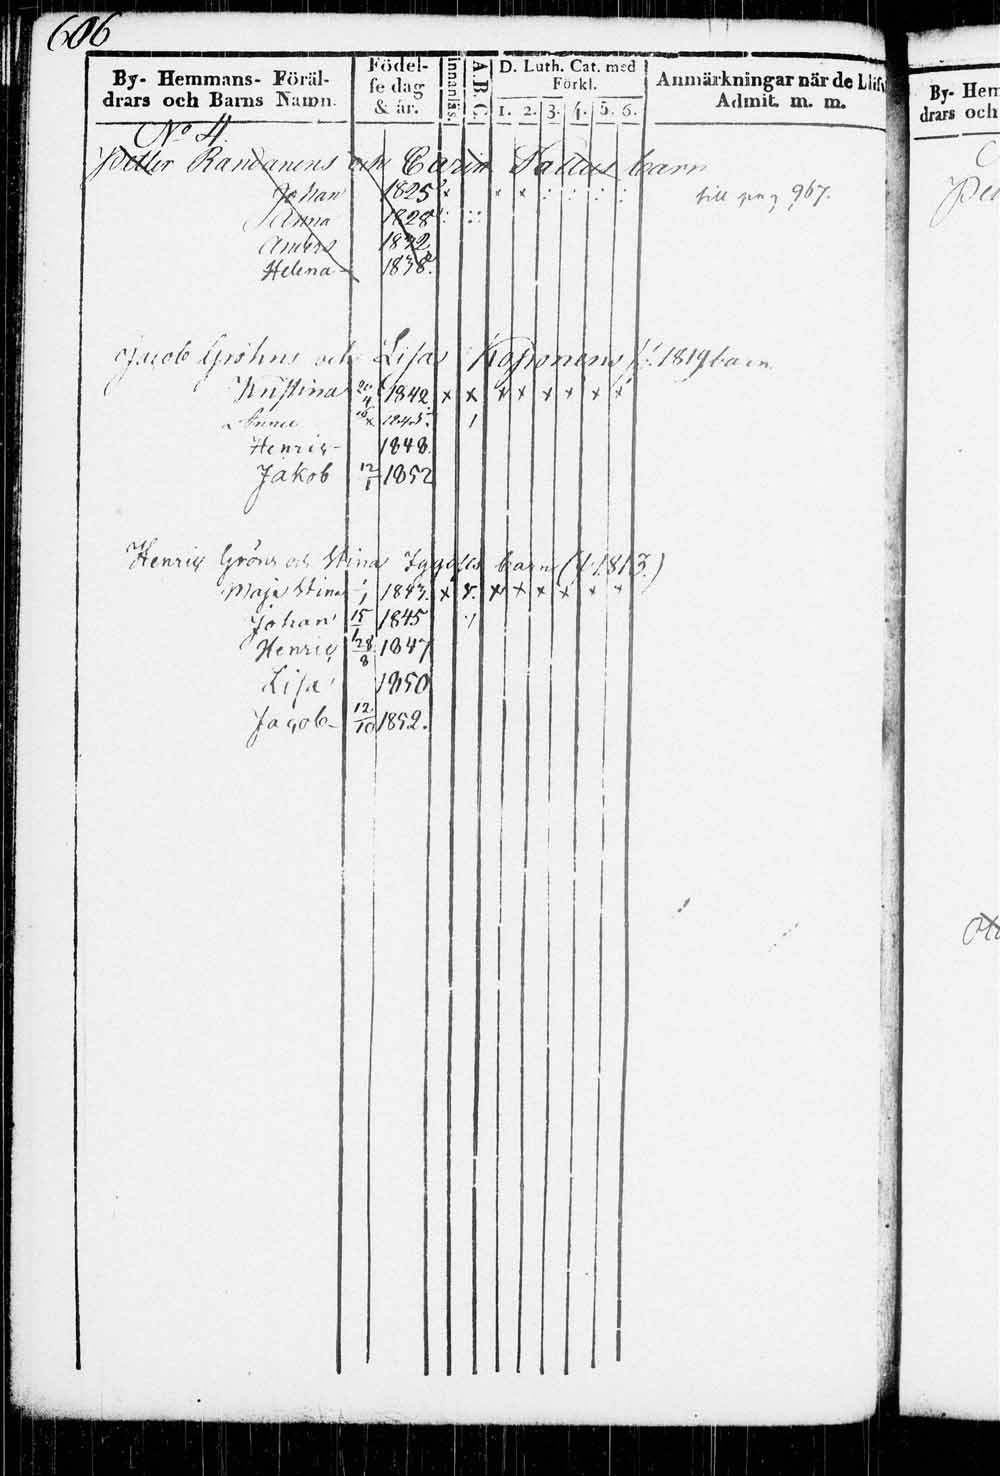 606
By- Hemmans- Föräl-
drars och Barns Namn.
Födel-
se dag
& år.
Innanläs.
A.B.C.
D. Luth. Cat. med
Förkl.
1. 2. 3. 4. 5. 6.
Anmärkningar när de
Admit. m. m.
No 4.
Petter Randanens och Carin barn
Johan 1825 x x x : : : : till pag 967.
Anna 1828
Anders 1832
Helena 1838.
Jacob Gröhns och Lisas Kosonens 1819 barn
Kristina 20/4 1842 x x x x x x x x
Anna
Henric 1848.
Jakob 12/1 1852
Henric Gröns och Stinas barn (f. 1813.)
Maja Stina 1/1 1843. x x. x x x x x x
Johan 15/1 1845
Henric 28/8 1847
Lisa 1850
Jacob 12/10 1852.
By- Hem
drars och